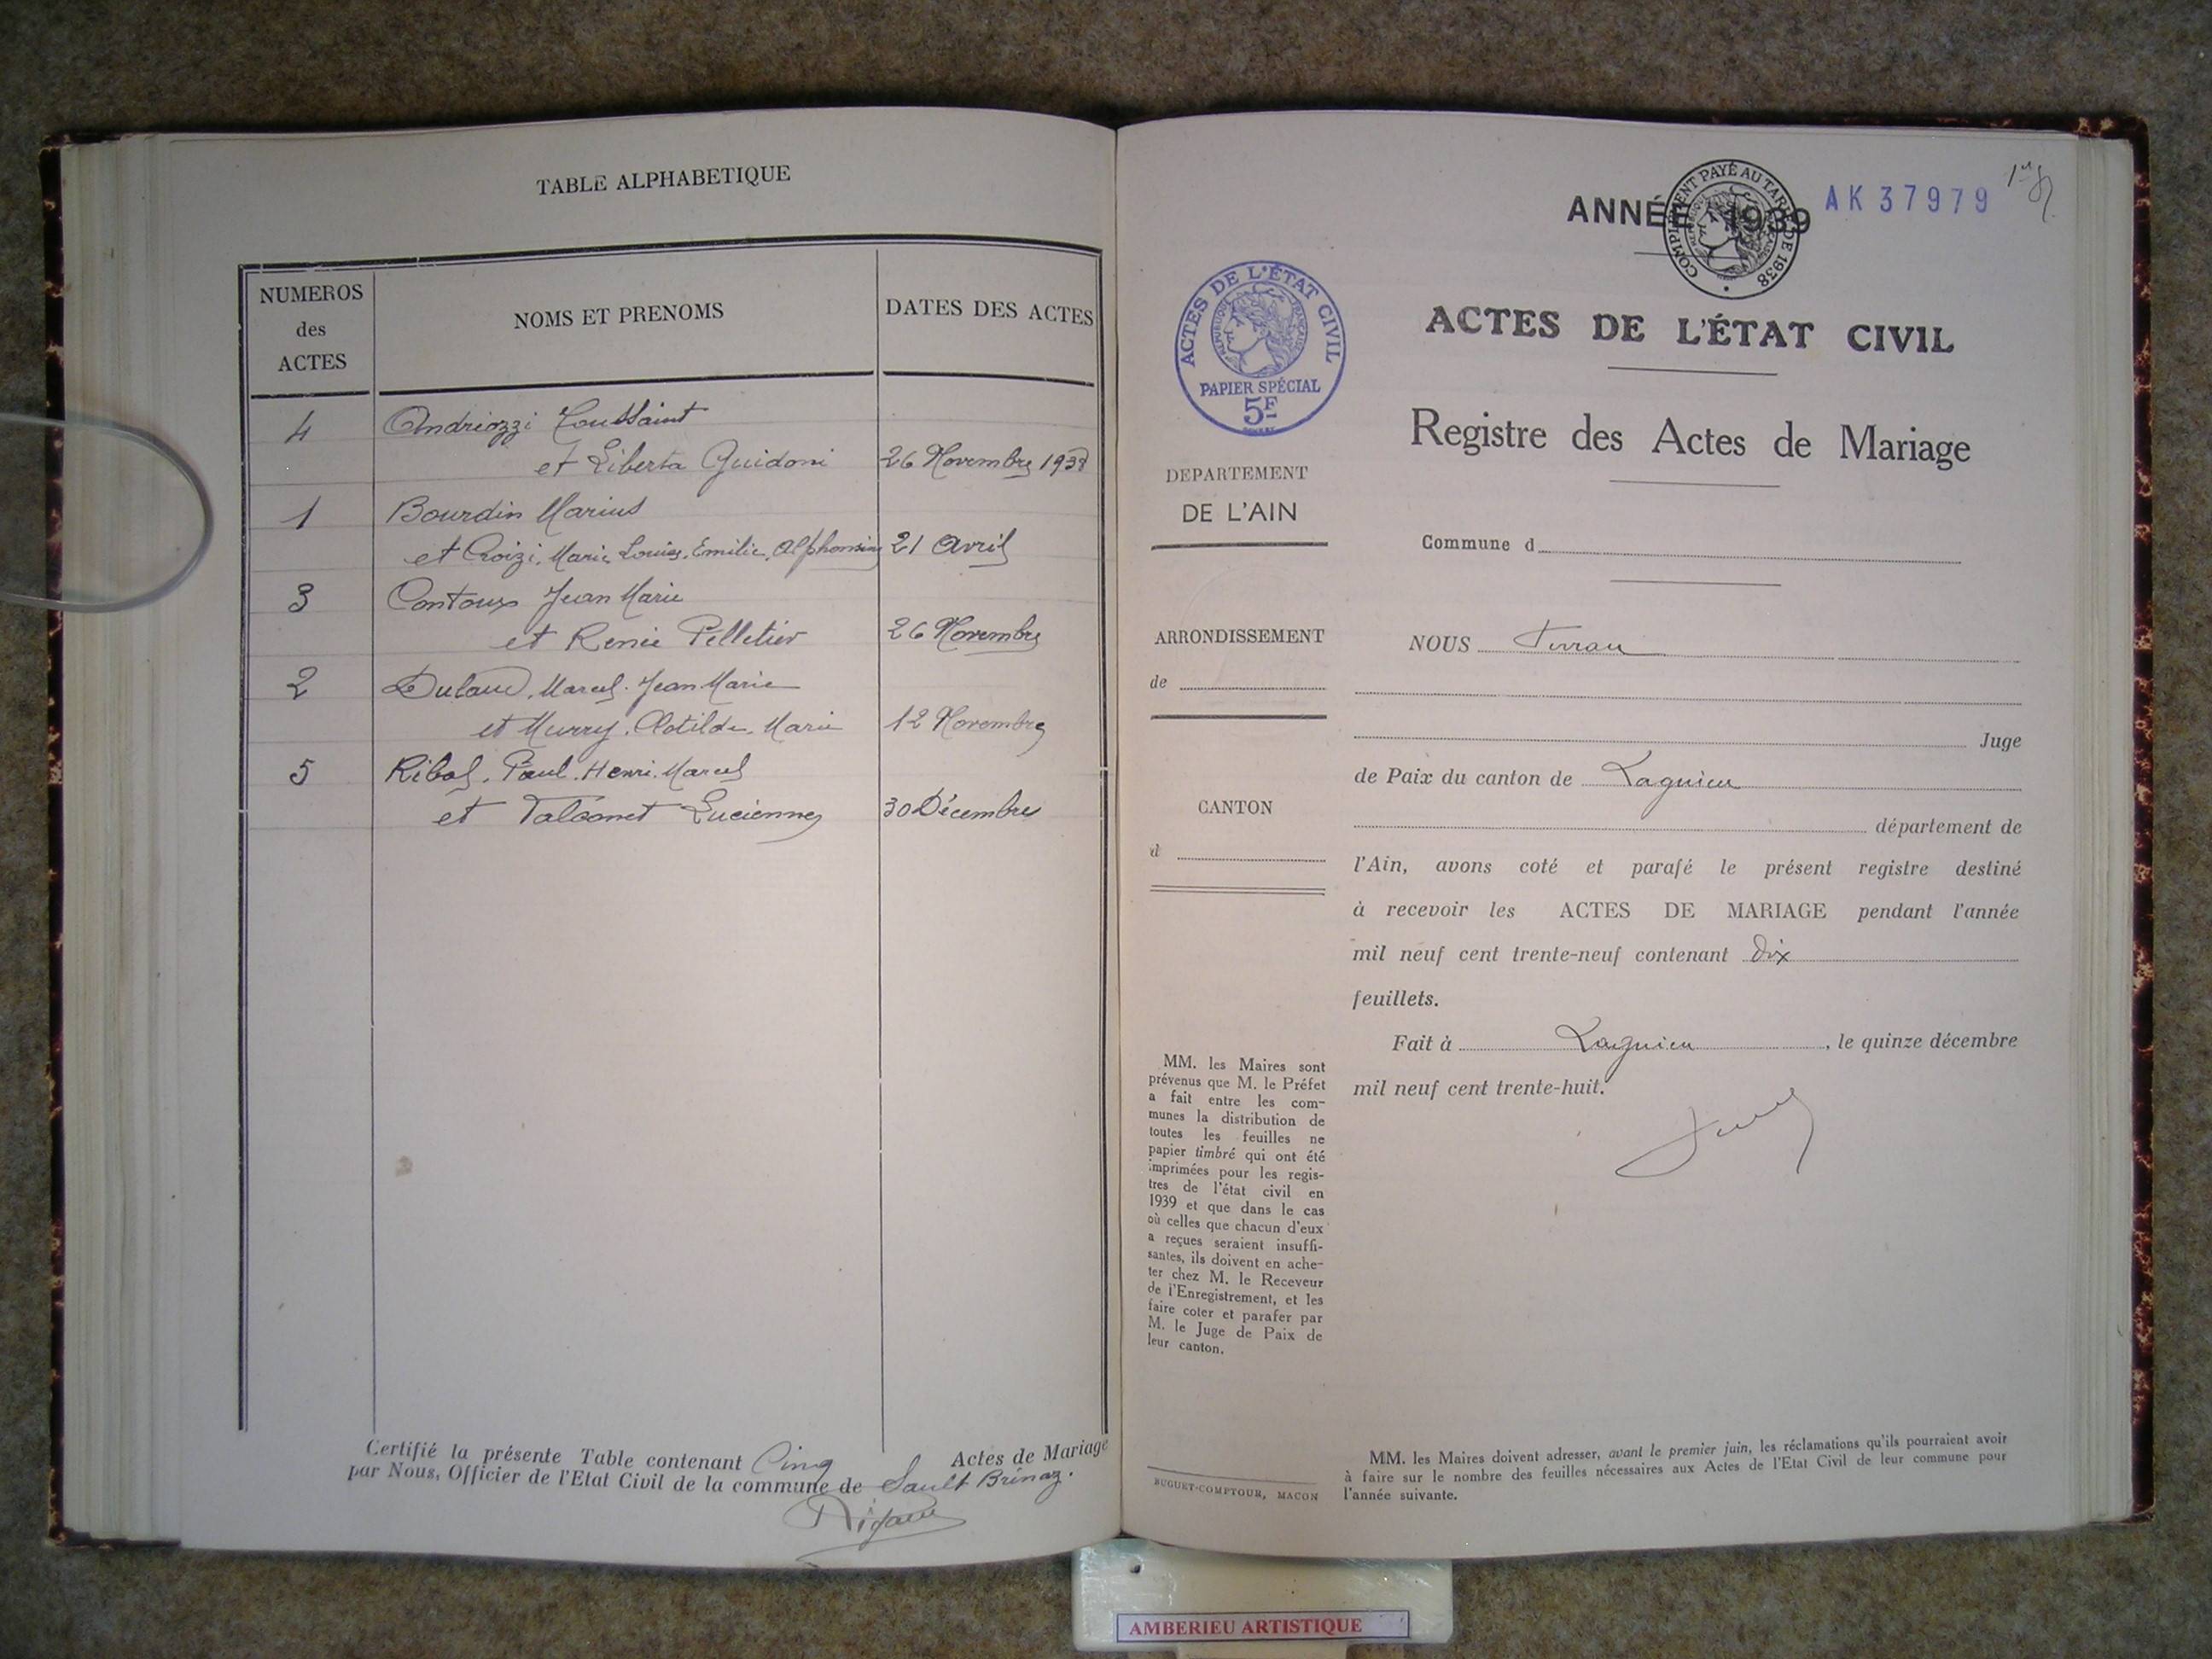 TABLE ALPHABETIQUE
NUMEROS
des
ACTES
NOMS ET PRENOMS
DATES DES ACTES
4 Andriozzi Toussaint
et Liberta Guidoni 26 Novembre 1938
1 Bourdin Marius
et Croizi, Marie, Louise, Emilie, Alphonsine 21 Avril
3 Contoux Jean Marie
et Renée Pelletier 26 Novembre
2 Marcel. Jean Marie
et Murry. Clotilde. Marie 12 Novembre
5 Paul. Henri. Marcel
et Lucienne 30 Décembre
Certifié la présente Table contenant Cinq Actes de Mariage
par Nous, Officier de l'Etat Civil de la commune de Sault Brénaz.
ANNÉE 1939
COMPLEMENT PAYÉ AU TARIF DE 1938
AK 37979
ACTES DE L'ÉTAT CIVIL
REPUBLIQUE FRANÇAISE
PAPIER SPÉCIAL
5F
ACTES DE L'ÉTAT CIVIL
Registre des Actes de Mariage
DEPARTEMENT
DE L'AIN
Commune d
ARRONDISSEMENT
de
CANTON
d
NOUS
Juge
de Paix du canton de Lagnieu
département de
l'Ain, avons coté et parafé le présent registre destiné
à recevoir les ACTES DE MARIAGE pendant l'année
mil neuf cent trente-neuf contenant Dix
feuillets.
Fait à Lagnieu, le quinze décembre
mil neuf cent trente-huit.
MM. les Maires sont
prévenus que M. le Préfet
a fait entre les com-
munes la distribution de
toutes les feuilles ne
papier timbré qui ont été
imprimées pour les regis-
tres de l'état civil en
1939 et que dans le cas
où celles que chacun d'eux
a reçues seraient insuffi-
santes, ils doivent en ache-
ter chez M. le Receveur
de l'Enregistrement, et les
faire coter et parafer par
M. le Juge de Paix de
leur canton.
BUGUET-COMPTOUR, MACON
MM. les Maires doivent adresser, avant le premier juin, les réclamations qu'ils pourraient avoir
à faire sur le nombre des feuilles nécessaires aux Actes de l'Etat Civil de leur commune pour
l'année suivante.
AMBERIEU ARTISTIQUE